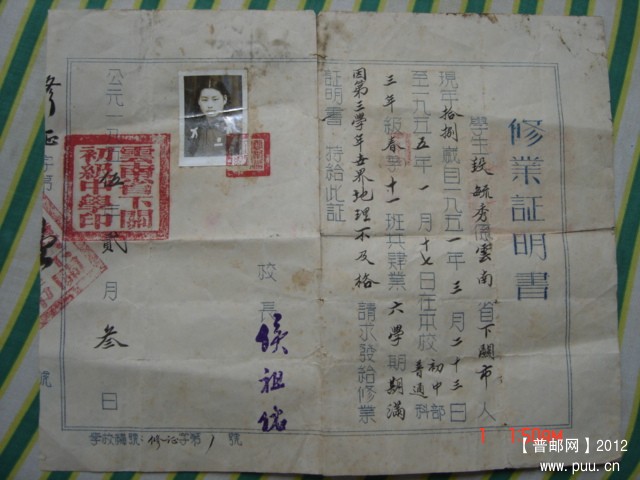 修業証明書
學生段毓秀係雲南省下關市人
現年拾捌歲自一九五一年三月二十三日
至一九五五年一月十七日在本校初中部普通科
三年級春季十一班共肄業六學期期滿
因第三學年世界地理不及格請求發給修業
証明書特給此証
校長
公元一九五伍年貳月叁日
雲南省下關初級中學印
修証字第
號
學校編號:修証字第1號
【普邮网】2012
www.puu.cn